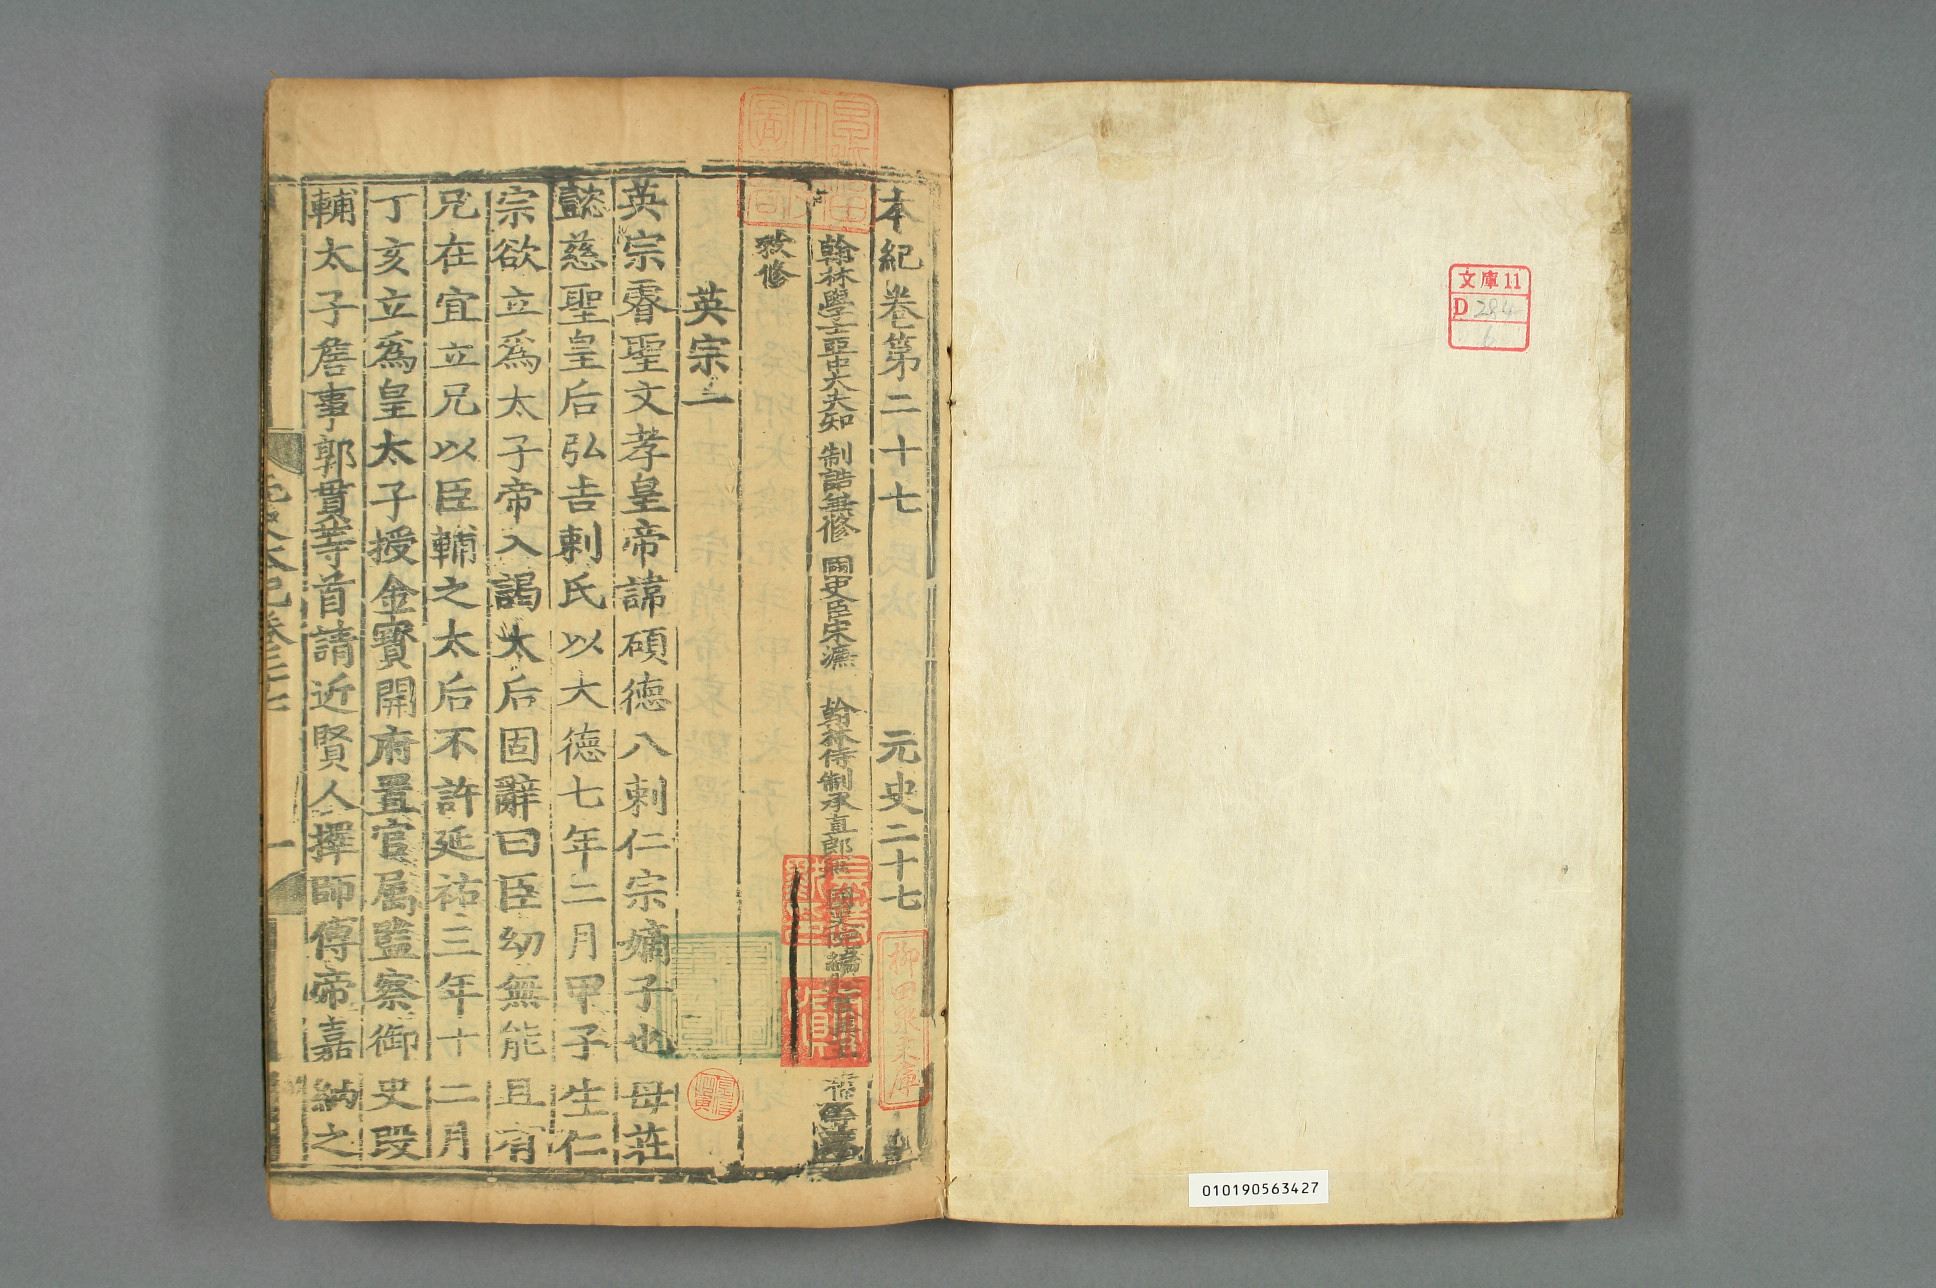 文庫11
D 284
6
010190563427
本紀卷第二十七 元史二十七
翰林學士亞中大夫知 制誥兼修 國史臣宋濂 翰林待制承直郎兼 國史院編
敕修
英宗一
英宗睿聖文孝皇帝諱碩德八剌仁宗嫡子也母莊
懿慈聖皇后弘吉剌氏以大德七年二月甲子生仁
宗欲立爲太子帝入謁太后固辭曰臣幼無能且有
兄在宜立兄以臣輔之太后不許延祐三年十二月
丁亥立爲皇太子授金寶開府置官屬監察御史段
輔太子詹事郭貫等首請近賢人擇師傅帝嘉納之
元史本紀卷二十七
一
柳田泉文庫